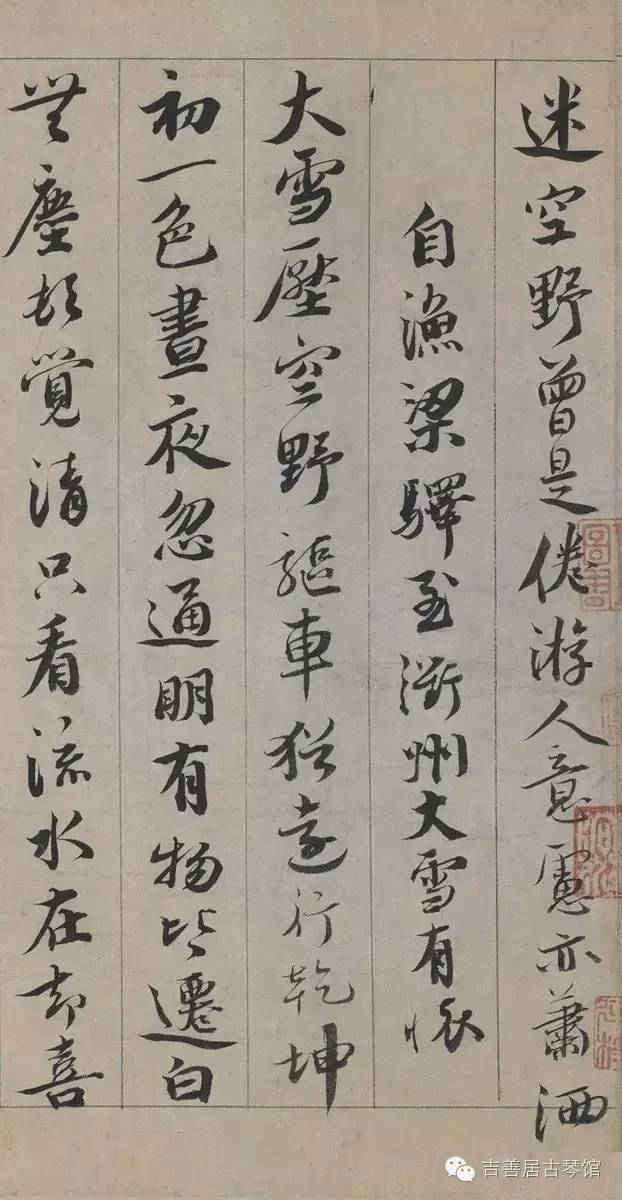 迷空野曾是倦游人意慮亦蕭洒
自漁梁驛至衢州大雪有懷
大雪壓空野驅車猶遠行乾坤
初一色晝夜忽通明有物皆遷白
無塵頓覺清只看流水在却喜
吉善居古琴馆